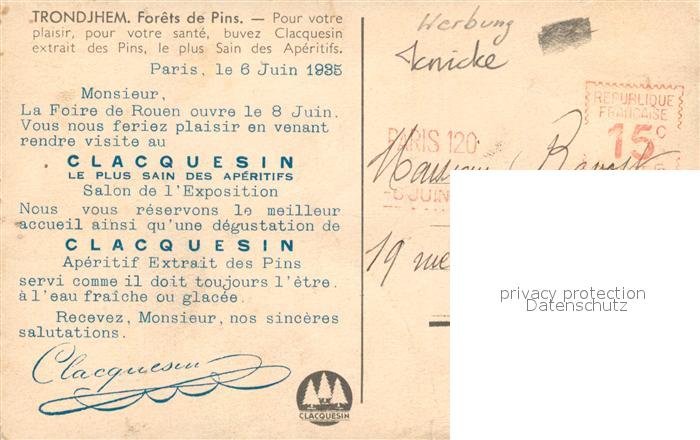 TRONDJHEM. Forêts de Pins. — Pour votre
plaisir, pour votre santé, buvez Clacquesin
extrait des Pins, le plus Sain des Apéritifs.
Paris, le 6 Juin 1935
Monsieur,
La Foire de Rouen ouvre le 8 Juin.
Vous nous feriez plaisir en venant
rendre visite au
CLACQUESIN
LE PLUS SAIN DES APÉRITIFS
Salon de l'Exposition
Nous vous réservons le meilleur
accueil ainsi qu'une dégustation de
CLACQUESIN
Apéritif Extrait des Pins
servi comme il doit toujours l'être.
à l'eau fraîche ou glacée.
Recevez, Monsieur, nos sincères
salutations.
Clacquesin
CLACQUESIN
Werbung
REPUBLIQUE
FRANÇAISE
15c
PARIS 120
6 JUIN
Monsieur
19 rue
privacy protection
Datenschutz